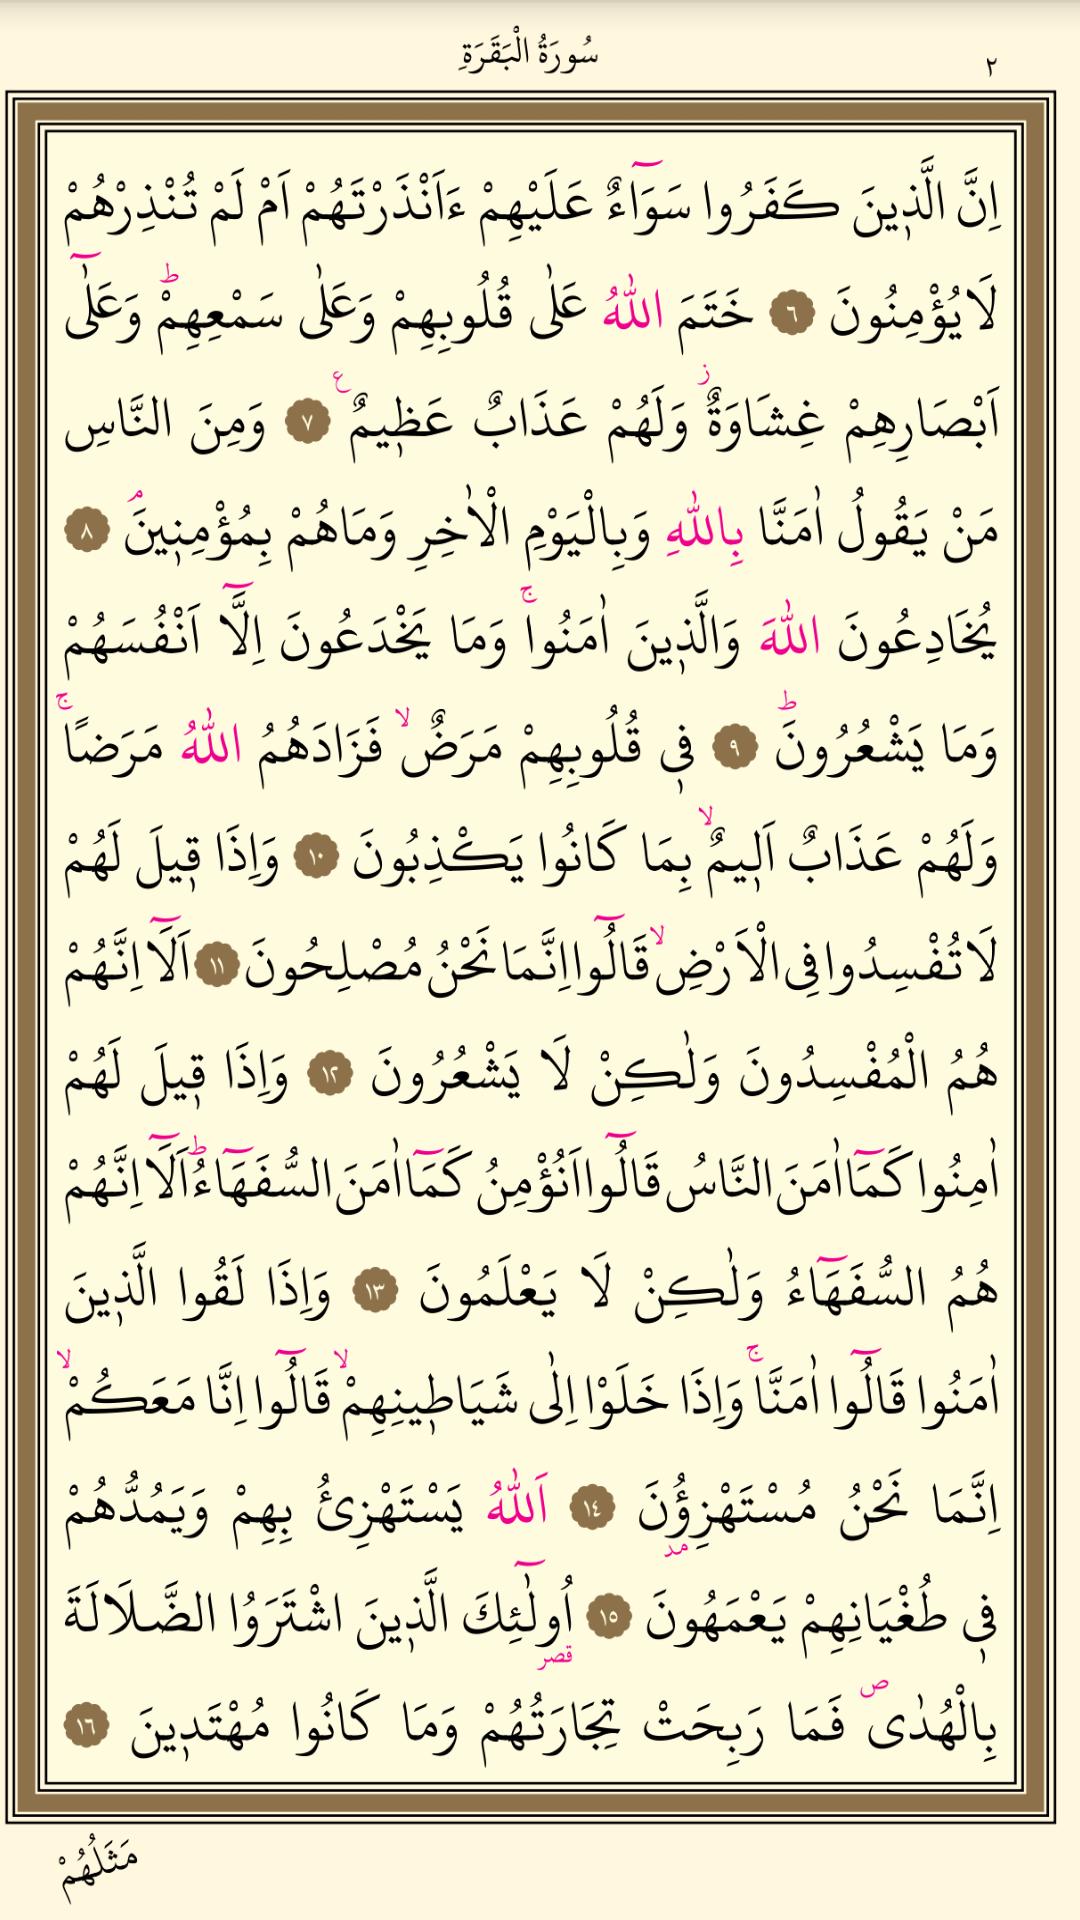 سُورَةُ الْبَقَرَةِ ٢
اِنَّ الَّذ۪ينَ كَفَرُوا سَوَٓاءٌ عَلَيْهِمْ ءَاَنْذَرْتَهُمْ اَمْ لَمْ تُنْذِرْهُمْ
لَا يُؤْمِنُونَ ﴿٦﴾ خَتَمَ اللّٰهُ عَلٰى قُلُوبِهِمْ وَعَلٰى سَمْعِهِمْۜ وَعَلٰٓى
اَبْصَارِهِمْ غِشَاوَةٌۘ وَلَهُمْ عَذَابٌ عَظ۪يمٌ۟ ﴿٧﴾ وَمِنَ النَّاسِ
مَنْ يَقُولُ اٰمَنَّا بِاللّٰهِ وَبِالْيَوْمِ الْاٰخِرِ وَمَاهُمْ بِمُؤْمِن۪ينَۢ ﴿٨﴾
يُخَادِعُونَ اللّٰهَ وَالَّذ۪ينَ اٰمَنُواۚ وَمَا يَخْدَعُونَ اِلَّٓا اَنْفُسَهُمْ
وَمَا يَشْعُرُونَۜ ﴿٩﴾ ف۪ي قُلُوبِهِمْ مَرَضٌۙ فَزَادَهُمُ اللّٰهُ مَرَضًاۚ
وَلَهُمْ عَذَابٌ اَل۪يمٌۙ بِمَا كَانُوا يَكْذِبُونَ ﴿١٠﴾ وَاِذَا ق۪يلَ لَهُمْ
لَا تُفْسِدُوا فِي الْاَرْضِۙ قَالُٓوا اِنَّمَا نَحْنُ مُصْلِحُونَ ﴿١١﴾ اَلَٓا اِنَّهُمْ
هُمُ الْمُفْسِدُونَ وَلٰكِنْ لَا يَشْعُرُونَ ﴿١٢﴾ وَاِذَا ق۪يلَ لَهُمْ
اٰمِنُوا كَمَٓا اٰمَنَ النَّاسُ قَالُٓوا اَنُؤْمِنُ كَمَٓا اٰمَنَ السُّفَهَٓاءُۜ اَلَٓا اِنَّهُمْ
هُمُ السُّفَهَٓاءُ وَلٰكِنْ لَا يَعْلَمُونَ ﴿١٣﴾ وَاِذَا لَقُوا الَّذ۪ينَ
اٰمَنُوا قَالُٓوا اٰمَنَّاۚ وَاِذَا خَلَوْا اِلٰى شَيَاط۪ينِهِمْۙ قَالُٓوا اِنَّا مَعَكُمْۙ
اِنَّمَا نَحْنُ مُسْتَهْزِؤُ۫نَ ﴿١٤﴾ اَللّٰهُ يَسْتَهْزِئُ بِهِمْ وَيَمُدُّهُمْ
مد
ف۪ي طُغْيَانِهِمْ يَعْمَهُونَ ﴿١٥﴾ اُو۬لٰٓئِكَ الَّذ۪ينَ اشْتَرَوُا الضَّلَالَةَ
قصر
بِالْهُدٰىۖ فَمَا رَبِحَتْ تِجَارَتُهُمْ وَمَا كَانُوا مُهْتَد۪ينَ ﴿١٦﴾
مَثَلُهُمْ